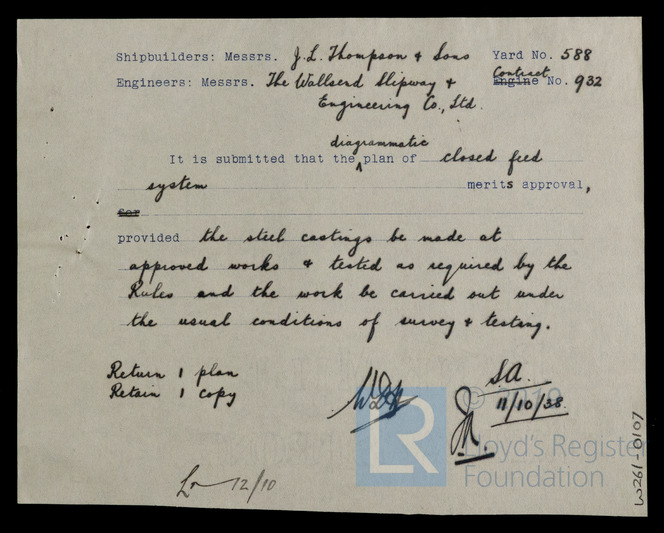 Shipbuilders: Messrs. J.L. Thompson & Sons Yard No. 588
Contract
Engineers: Messrs. The Wallsend Slipway & Engine No. 932
Engineering Co., Ltd.
diagrammatic
It is submitted that the plan of closed feed
system merits approval,
for
provided the steel castings be made at
approved works & tested as required by the
Rules and the work be carried out under
the usual conditions of survey & testing.
Return 1 plan
Retain 1 copy
S.A.
11/10/38.
12/10
© 2019
Lloyd's Register
Foundation
LR
W261-0107